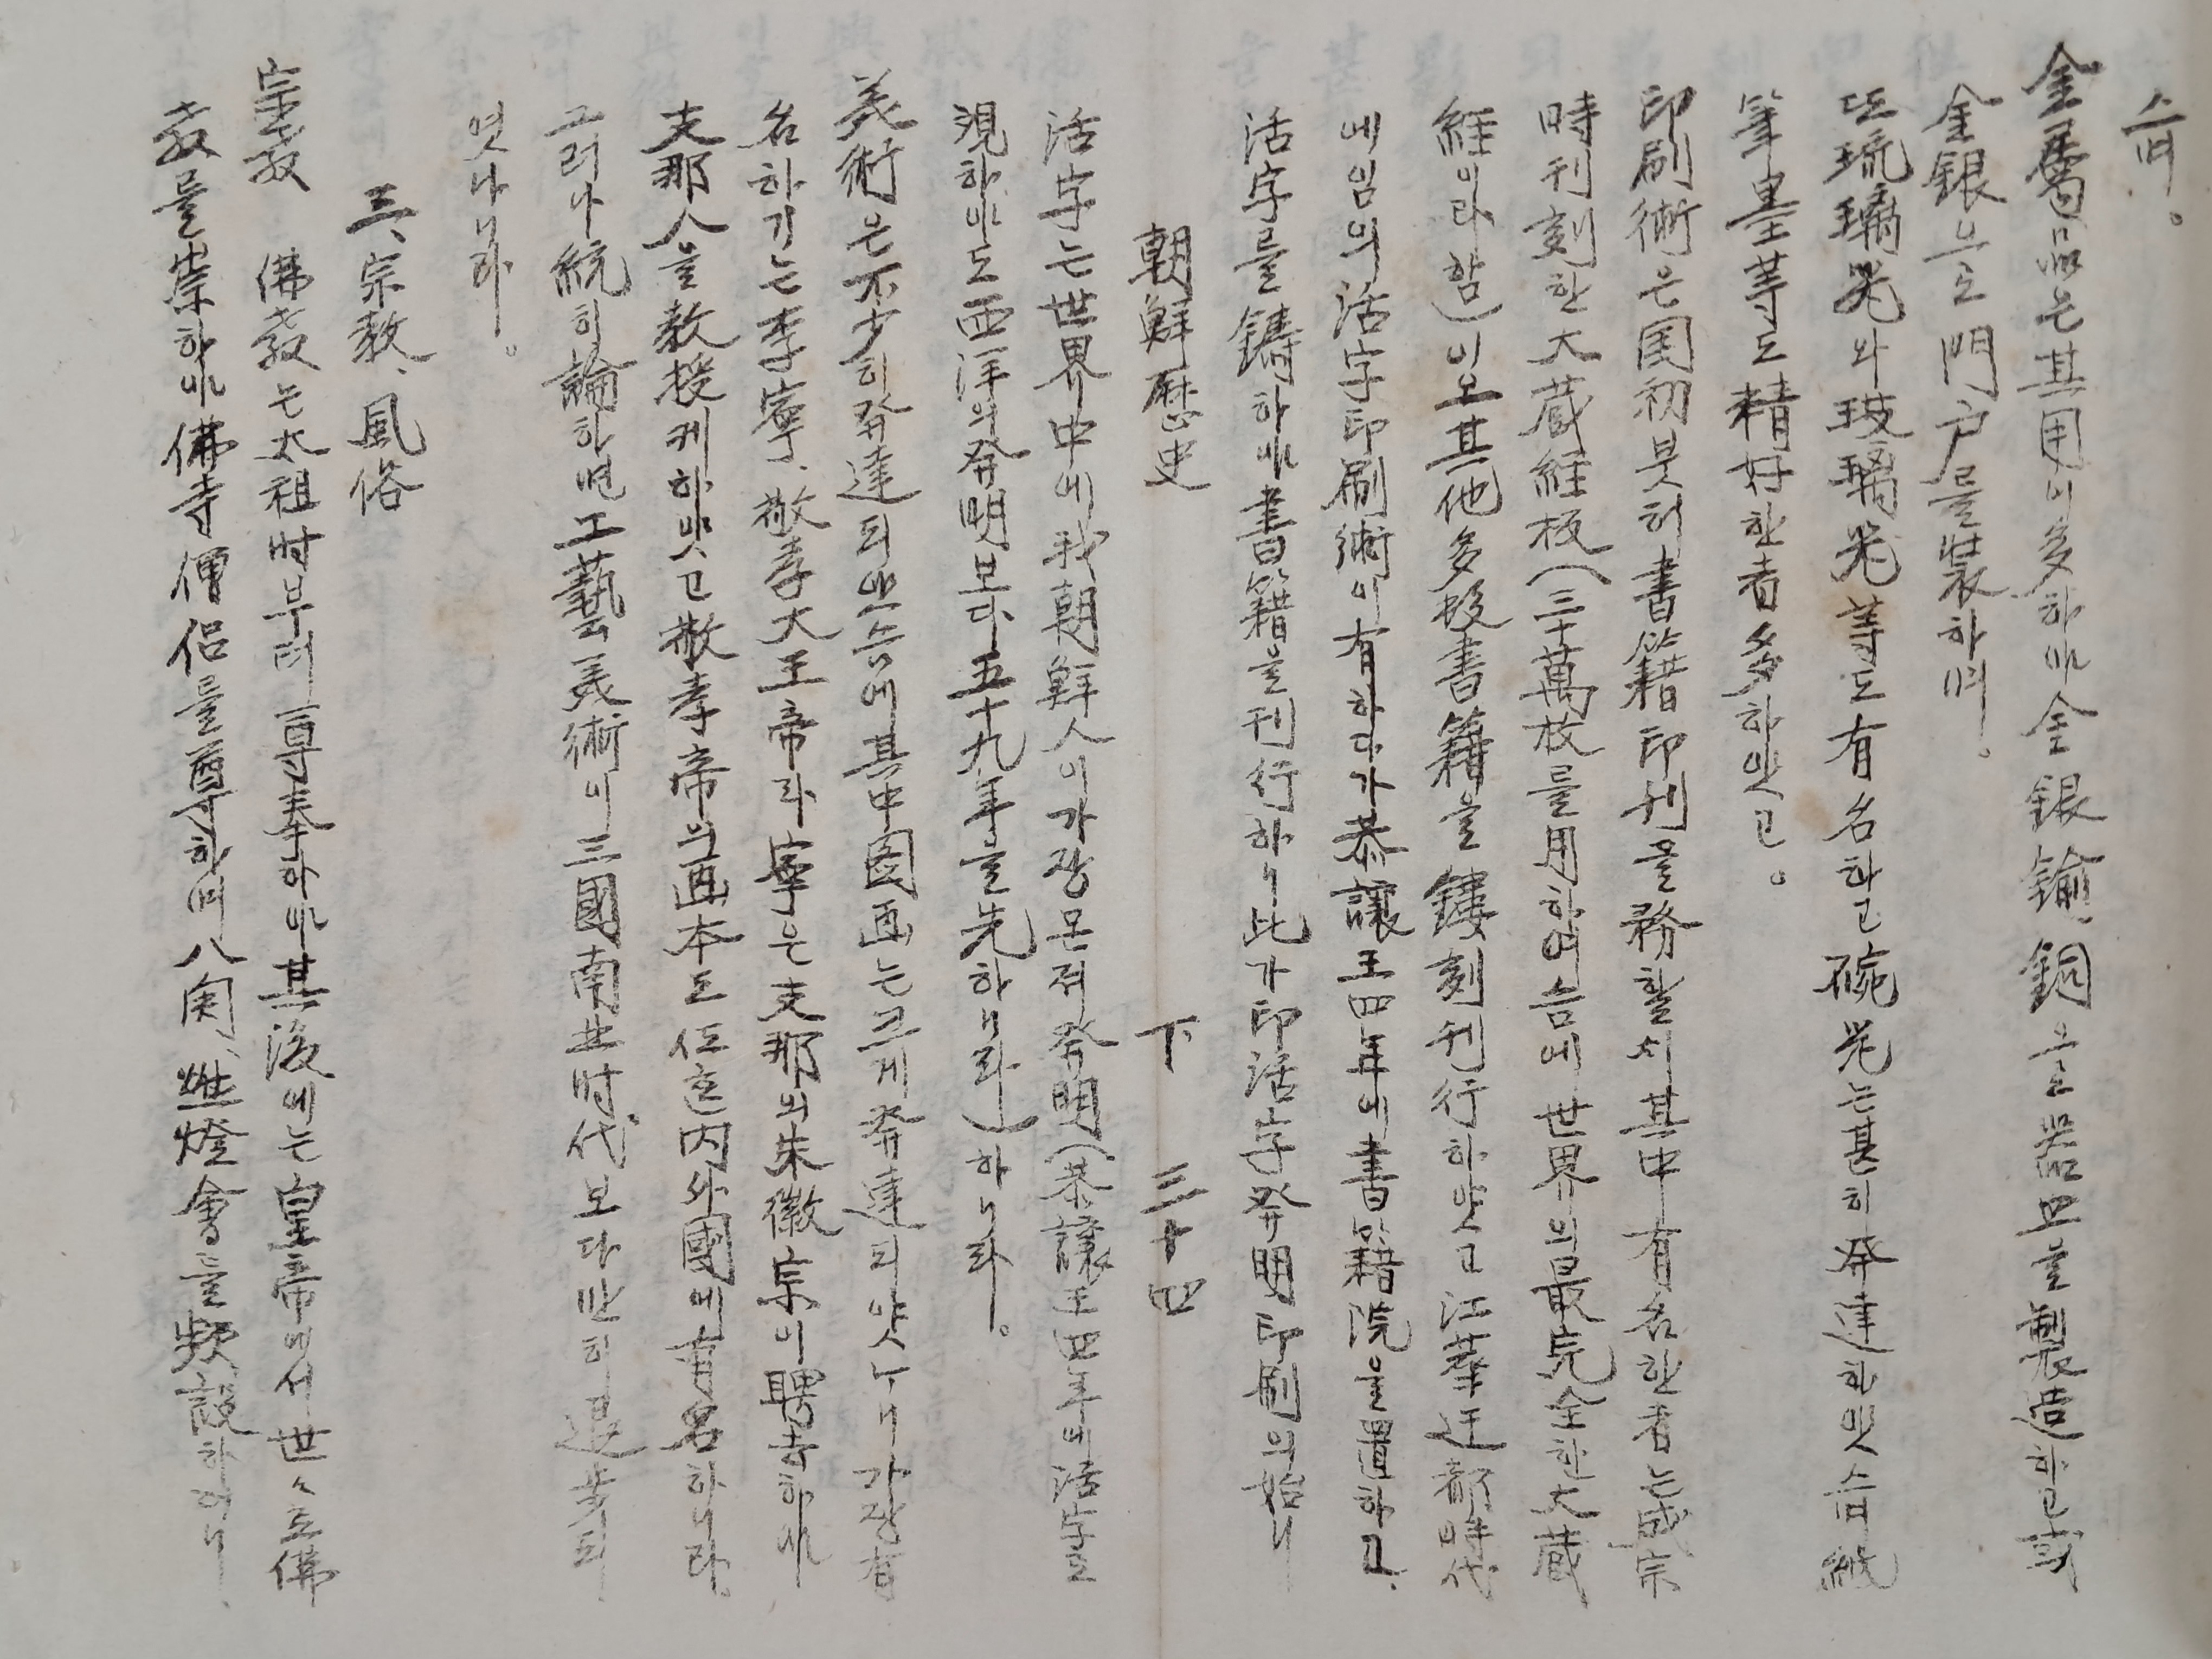 스며。
金屬品은其用이多하야金銀鍮、銅으로器皿을製造하고或
金銀으로門戶를裝하며。
또琉璃器와玻璃器等도有名하고碗器는甚히發達하얏스며紙
筆墨等도精好한者多하얏고。
印刷術은国初붓허書籍印刊을務할시其中有名한者는成宗
時刊刻한大蔵経板(三十萬枚를用하여슴에世界의最完全한大蔵
経이라함)이오其他多数書籍을鏤刻刊行하얏고江華迁都時代
에임의活字印刷術이有하다가恭讓王四年에書籍院을置하고、
活字를鑄하야書籍을刊行하니此가印活字発明印刷의始니
朝鮮歷史 下 三十四
活字는世界中에我朝鮮人이가장몬져発明(恭讓王四年에活字로
現하야도西洋의発明보다五十九年을先하니라)하니라。
美術은不少히発達되얏스니其中国画는크게発達되얏누니가장有
名하기는李寧、敬孝大王帝라寧은支那의朱徽宗이聘去하야
支那人을教授케하얏고敬孝帝의画本도伝흐內外國에有名하니라。
그러나統히論하면工藝美術이三國南北时代보다만히退步되
엿나니라。
三、宗教、風俗
宗教 佛教는太祖时부터尊奉하야其後에는皇帝에서世々로佛
教를崇하야佛寺僧侶를尊하며八関、燃燈會를頻設하어니